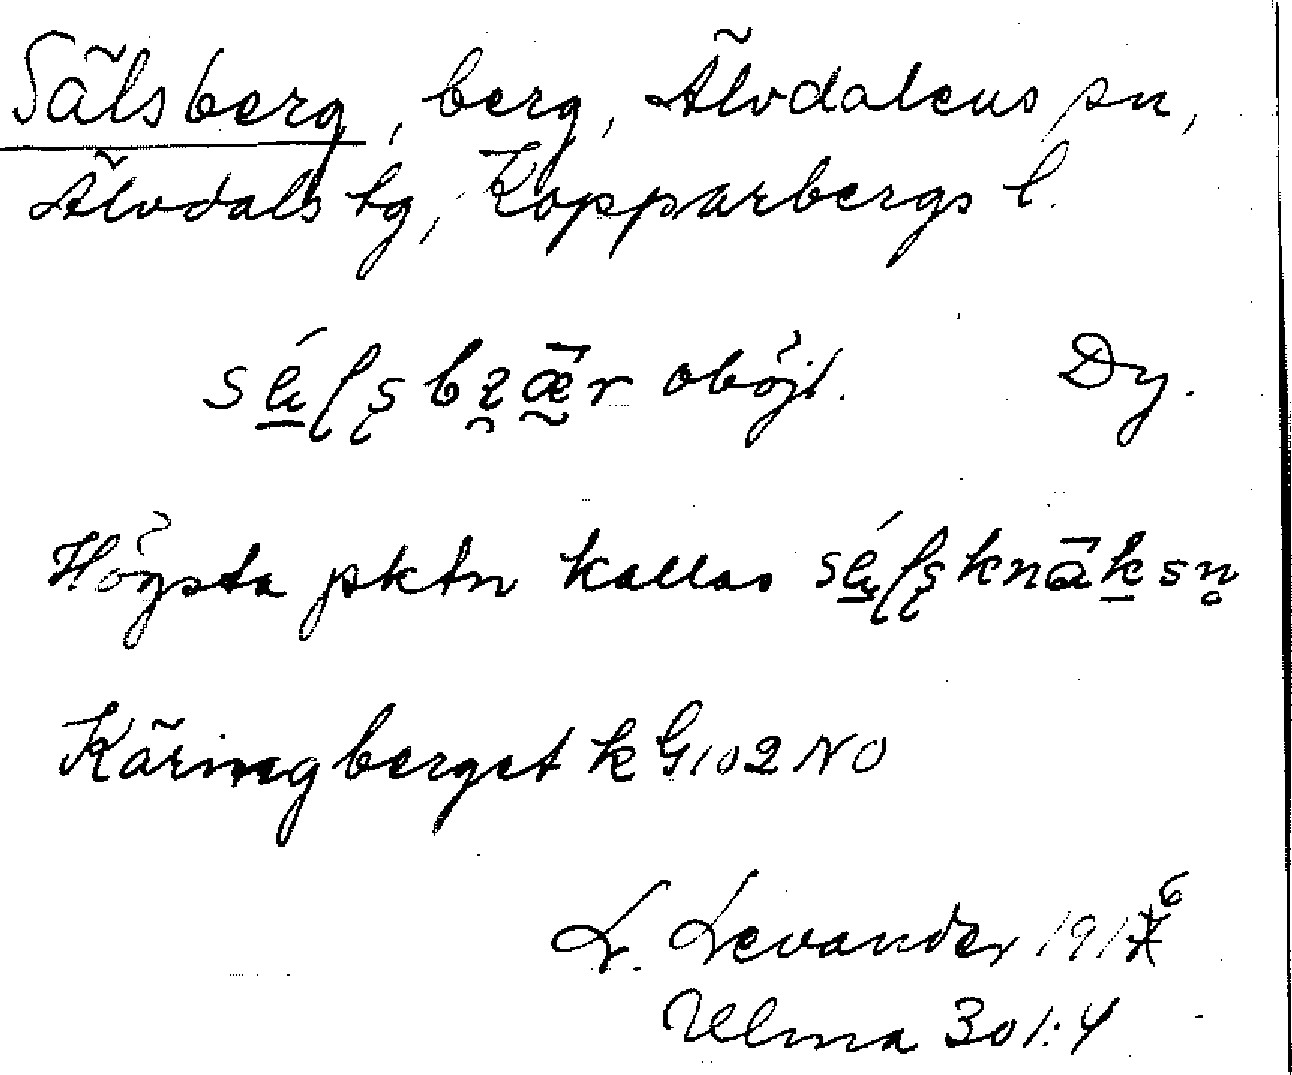 Sälsberg, berg, Älvdalens sn,
Älvdals tg, Kopparbergs l.
oböjt. Dy.
Högsta pktn kallas
Käringberget k G102 NO
L. Levander 1916
Ulma 301:4